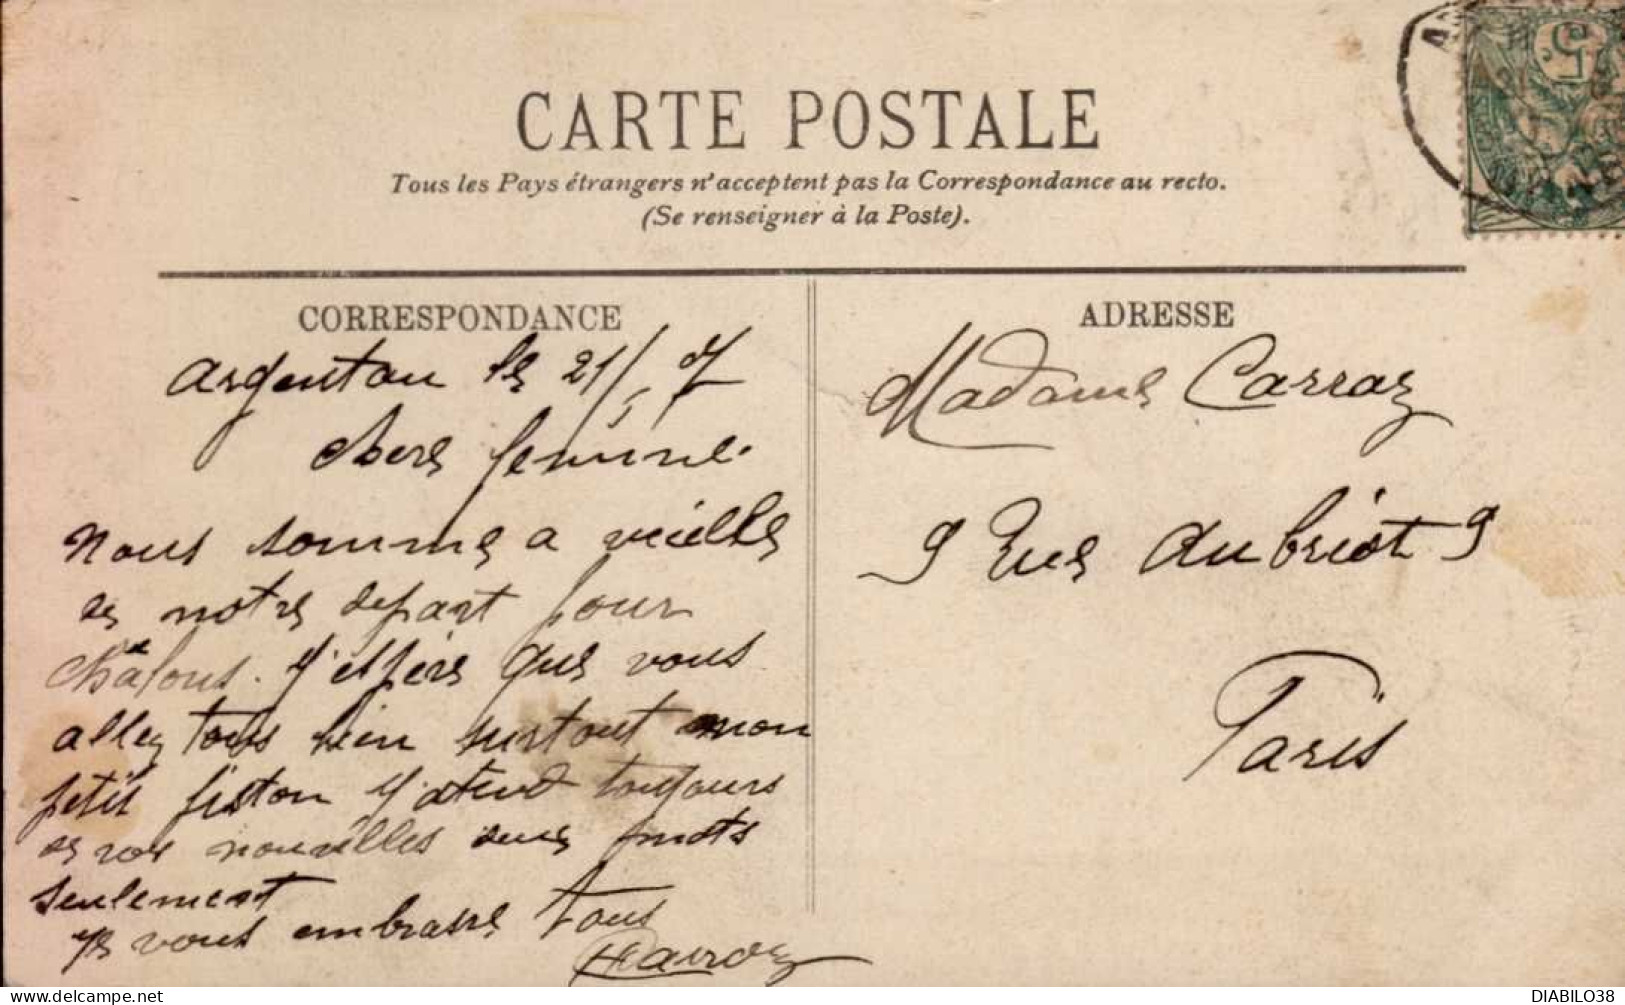 CARTE POSTALE
Tous les Pays étrangers n'acceptent pas la Correspondance au recto.
(Se renseigner à la Poste).
CORRESPONDANCE
Argentan le 21/5 07
chere femme.
Nous somme a vieille
de notre depart pour
châlons. J'espère que vous
allez tous bien surtout mon
petit fiston J'atend toujours
de vos nouvelles deux mots
seulement
Je vous embrasse tous
Carroz
ADRESSE
Madame Carraz
9 Rue Aubriot 9
Paris
5c
DIABILO38